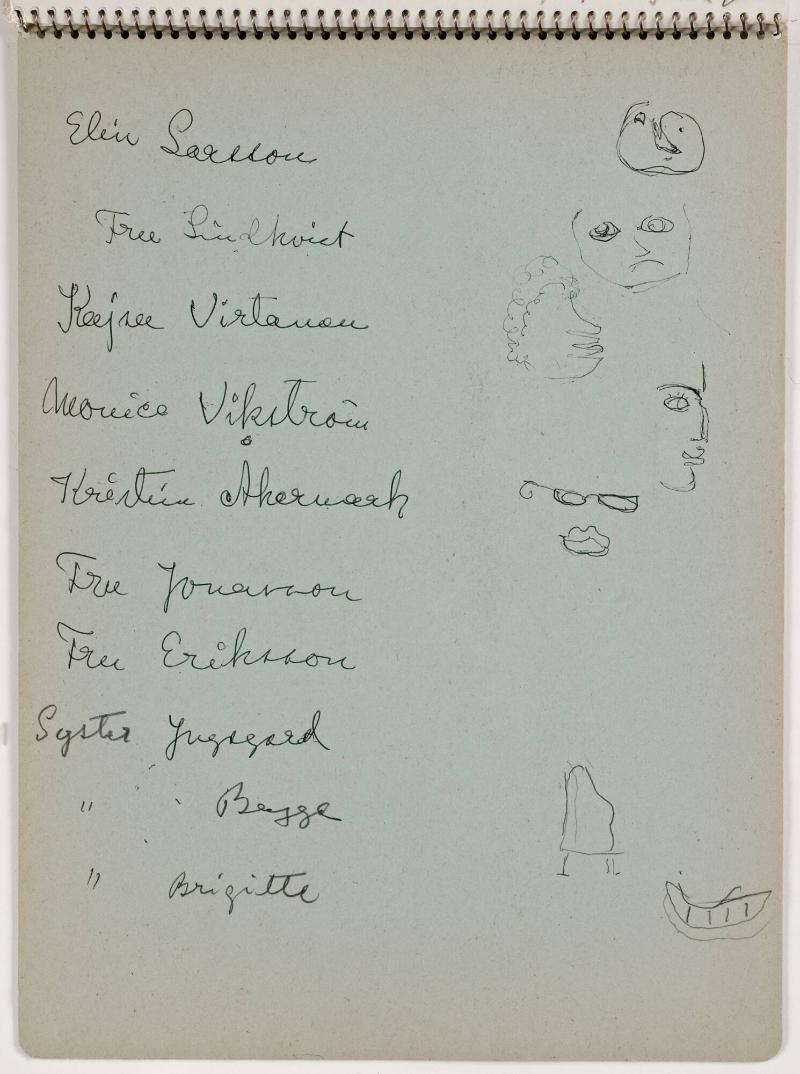 Elin Larsson
Fru Lindkvist
Kajsa Virtanen
Monica Vikström
Kristin Åkermark
Fru Jonasson
Fru Eriksson
Syster Ingegerd
" Bagge
" Brigitte